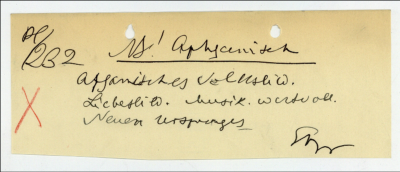 Pe/
232
NB! Aphganisch
Afganisches Volkslied.
Liebeslied. Musik. wertvoll.
Neuen Ursprunges